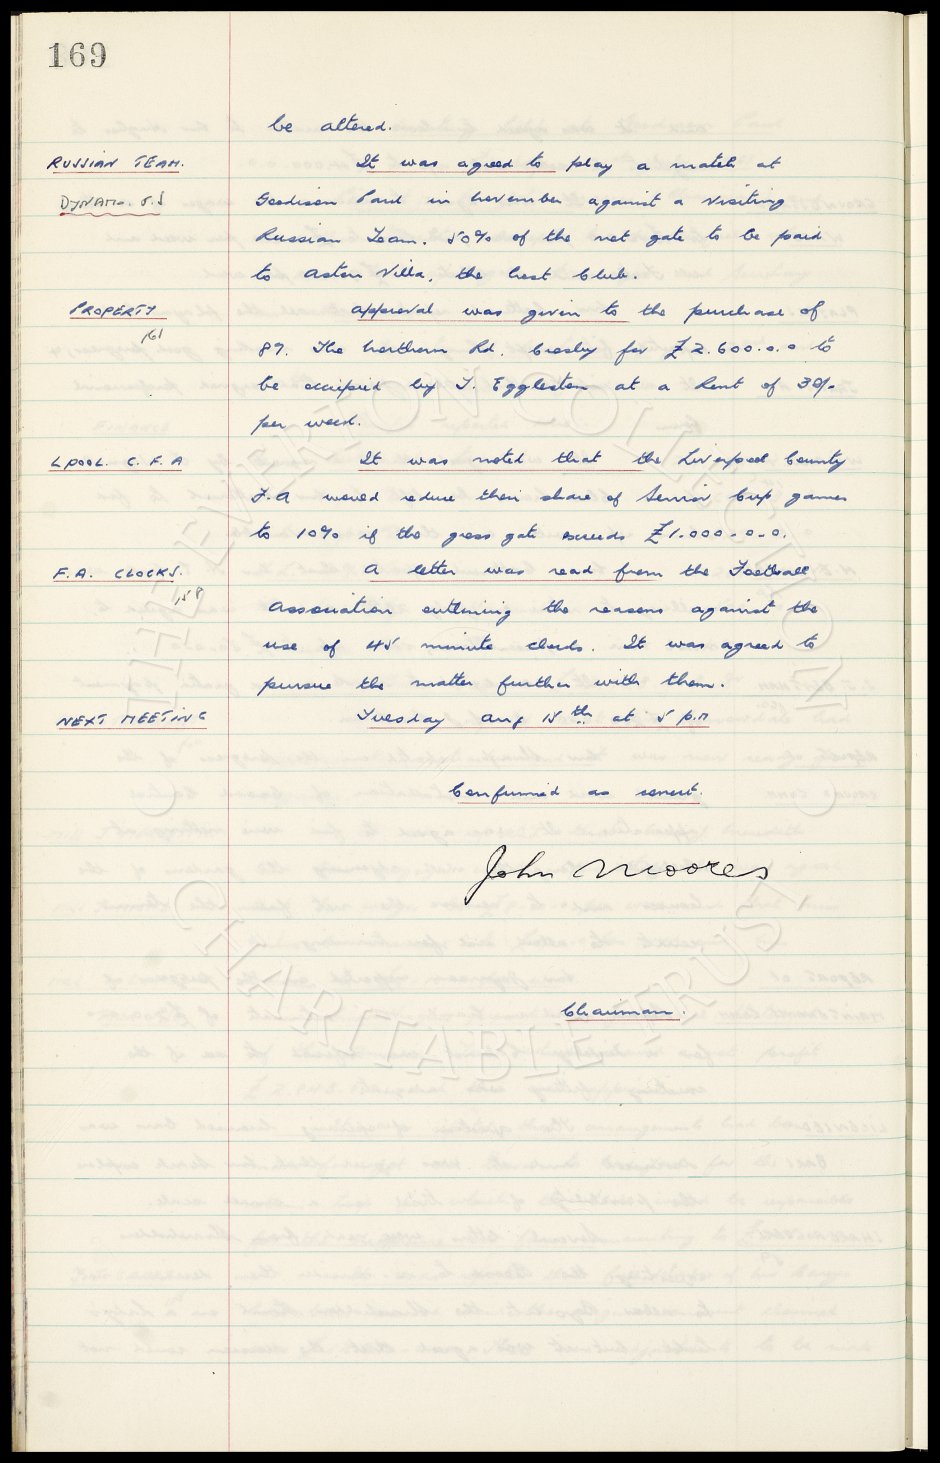 169
be altered.
RUSSIAN TEAM. It was agreed to play a match at
DYNAMO. Goodison Park in November against a visiting
Russian Team. 50% of the net gate to be paid
to Aston Villa, the host Club.
PROPERTY Approval was given to the purchase of
161 89. The Northern Rd. Crosby for £2.600.0.0 to
be occupied by T. Eggleston at a Rent of 30/-
per week.
LPOOL. C. F. A It was noted that the Liverpool County
F.A would reduce their share of Senior Cup games
to 10% if the gross gate exceeds £1.000-0-0.
F.A. CLOCKS. A letter was read from the Football
,58 Association outlining the reasons against the
use of 45 minute clocks. It was agreed to
pursue the matter further with them.
NEXT MEETING Tuesday Aug 15th at 5 p.m
Confirmed as correct.
John Moores
Chairman.
THE EVERTON COLLECTION
CHARITABLE TRUST